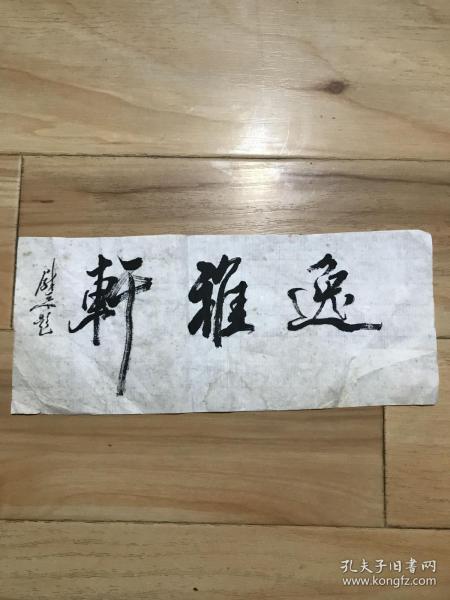 逸雅軒
孔夫子旧书网
www.kongfz.com